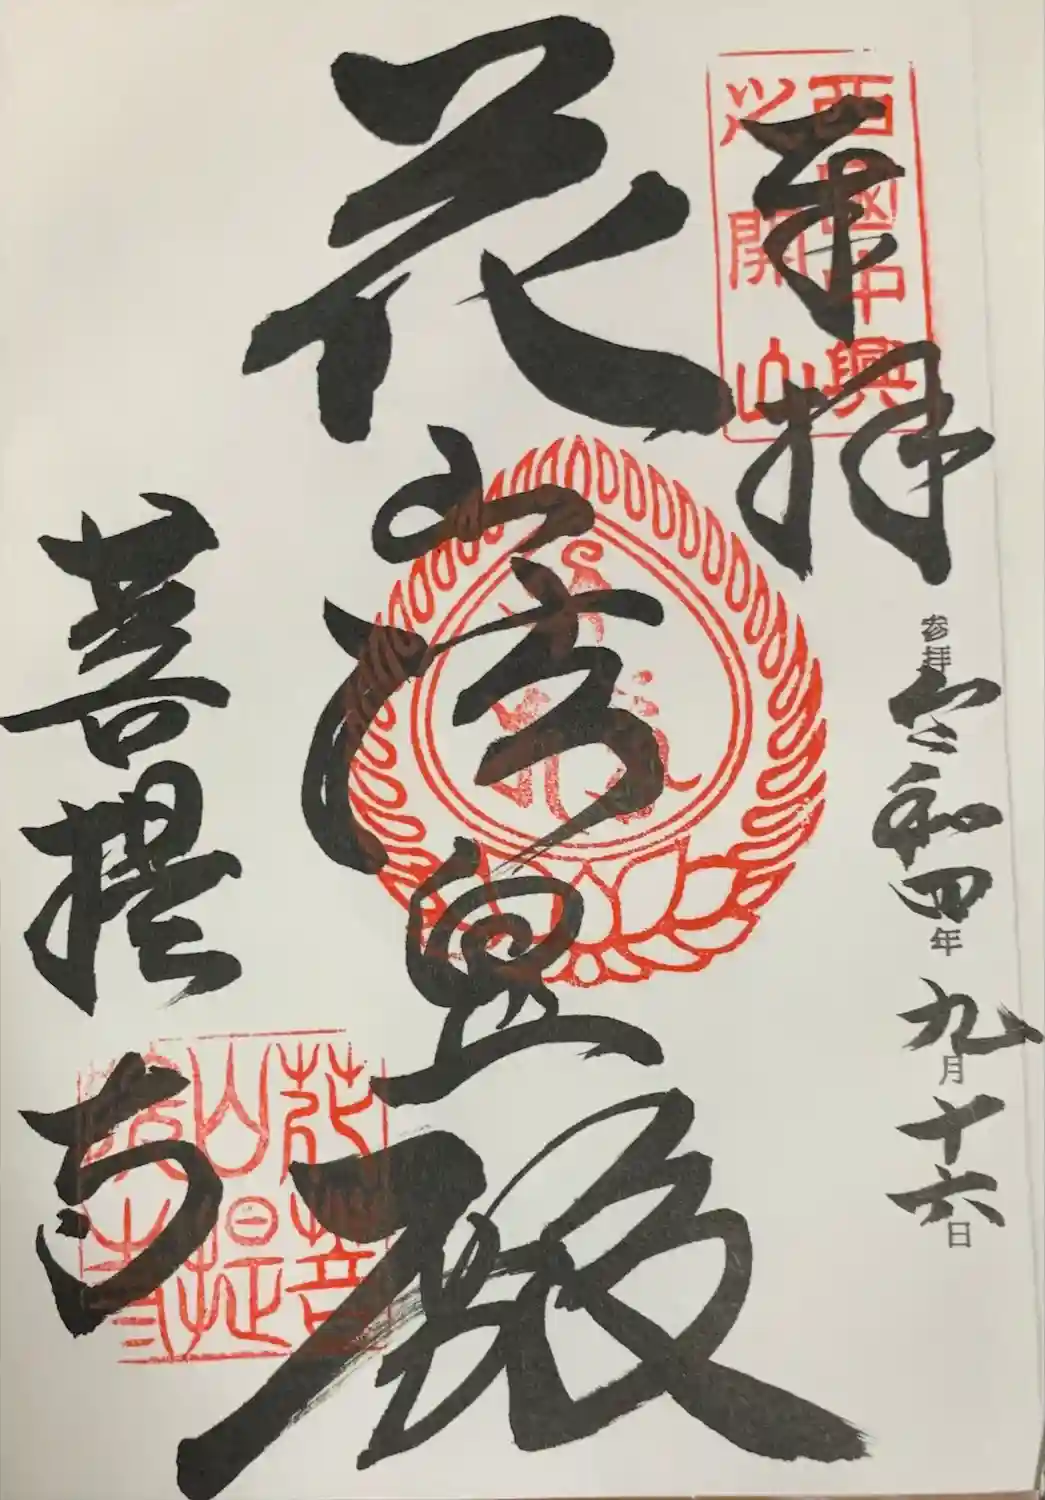 奉拝
西國中興
之開山
参拝 令和四年九月十六日
花山法皇殿
菩提寺
花山院
菩提寺